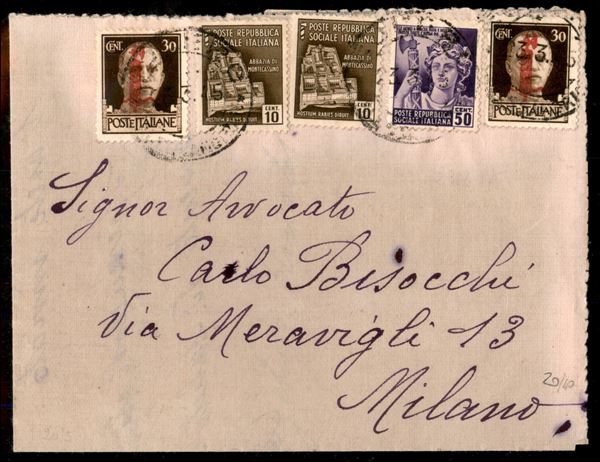 CENT. 30
POSTE ITALIANE
POSTE REPUBBLICA
SOCIALE ITALIANA
ABBAZIA DI
MONTECASSINO
CENT. 10
HOSTIUM RABIES DIRUIT
POSTE REPUBBLICA
SOCIALE ITALIANA
ABBAZIA DI
MONTECASSINO
CENT. 10
HOSTIUM RABIES DIRUIT
POSTE REPUBBLICA
SOCIALE ITALIANA
CENT. 50
CENT. 30
POSTE ITALIANE
Signor Avvocato
Carlo Bisocchi
Via Meravigli 13
Milano
20/40